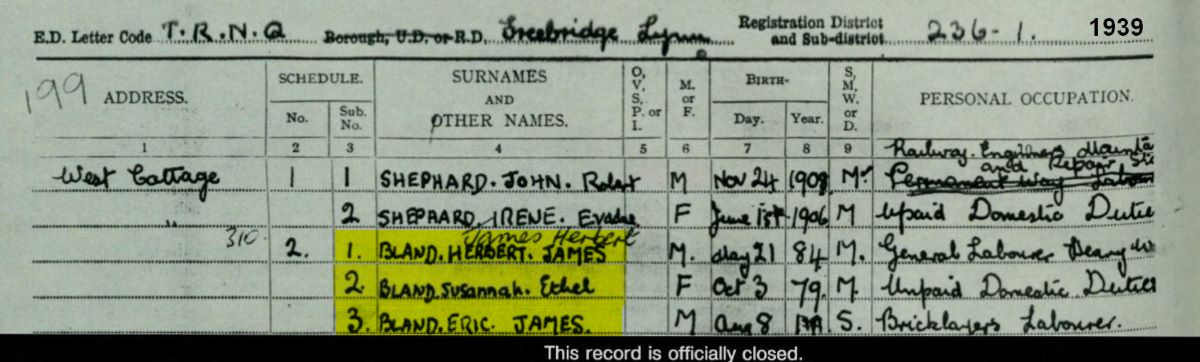 E.D. Letter Code T.R.N.Q Borough, U.D. or R.D. Freebridge Lynn Registration District and Sub-district 236-1. 1939
199
ADDRESS. SCHEDULE. No. Sub. No. SURNAMES AND OTHER NAMES. O, V, S, P. or I. M. or F. BIRTH- Day. Year. S, M, W. or D. PERSONAL OCCUPATION.
1 2 3 4 5 6 7 8 9
Railway. Engineers
and Repair
West Cottage 1 1 SHEPHARD. JOHN. Robert M Nov 24 1908 M Permanent Way
" 2 SHEPHARD IRENE. Evadne F June 1st 1906 M Unpaid Domestic Dutie
James Herbert
310. 2. 1. BLAND. HERBERT. JAMES M. May 21 84 M. General Labourer Heavy
2 BLAND. Susannah. Ethel F Oct 3 79. M. Unpaid Domestic Duties
3. BLAND. ERIC. JAMES. M Aug 8 S. Bricklayers Labourer.
This record is officially closed.